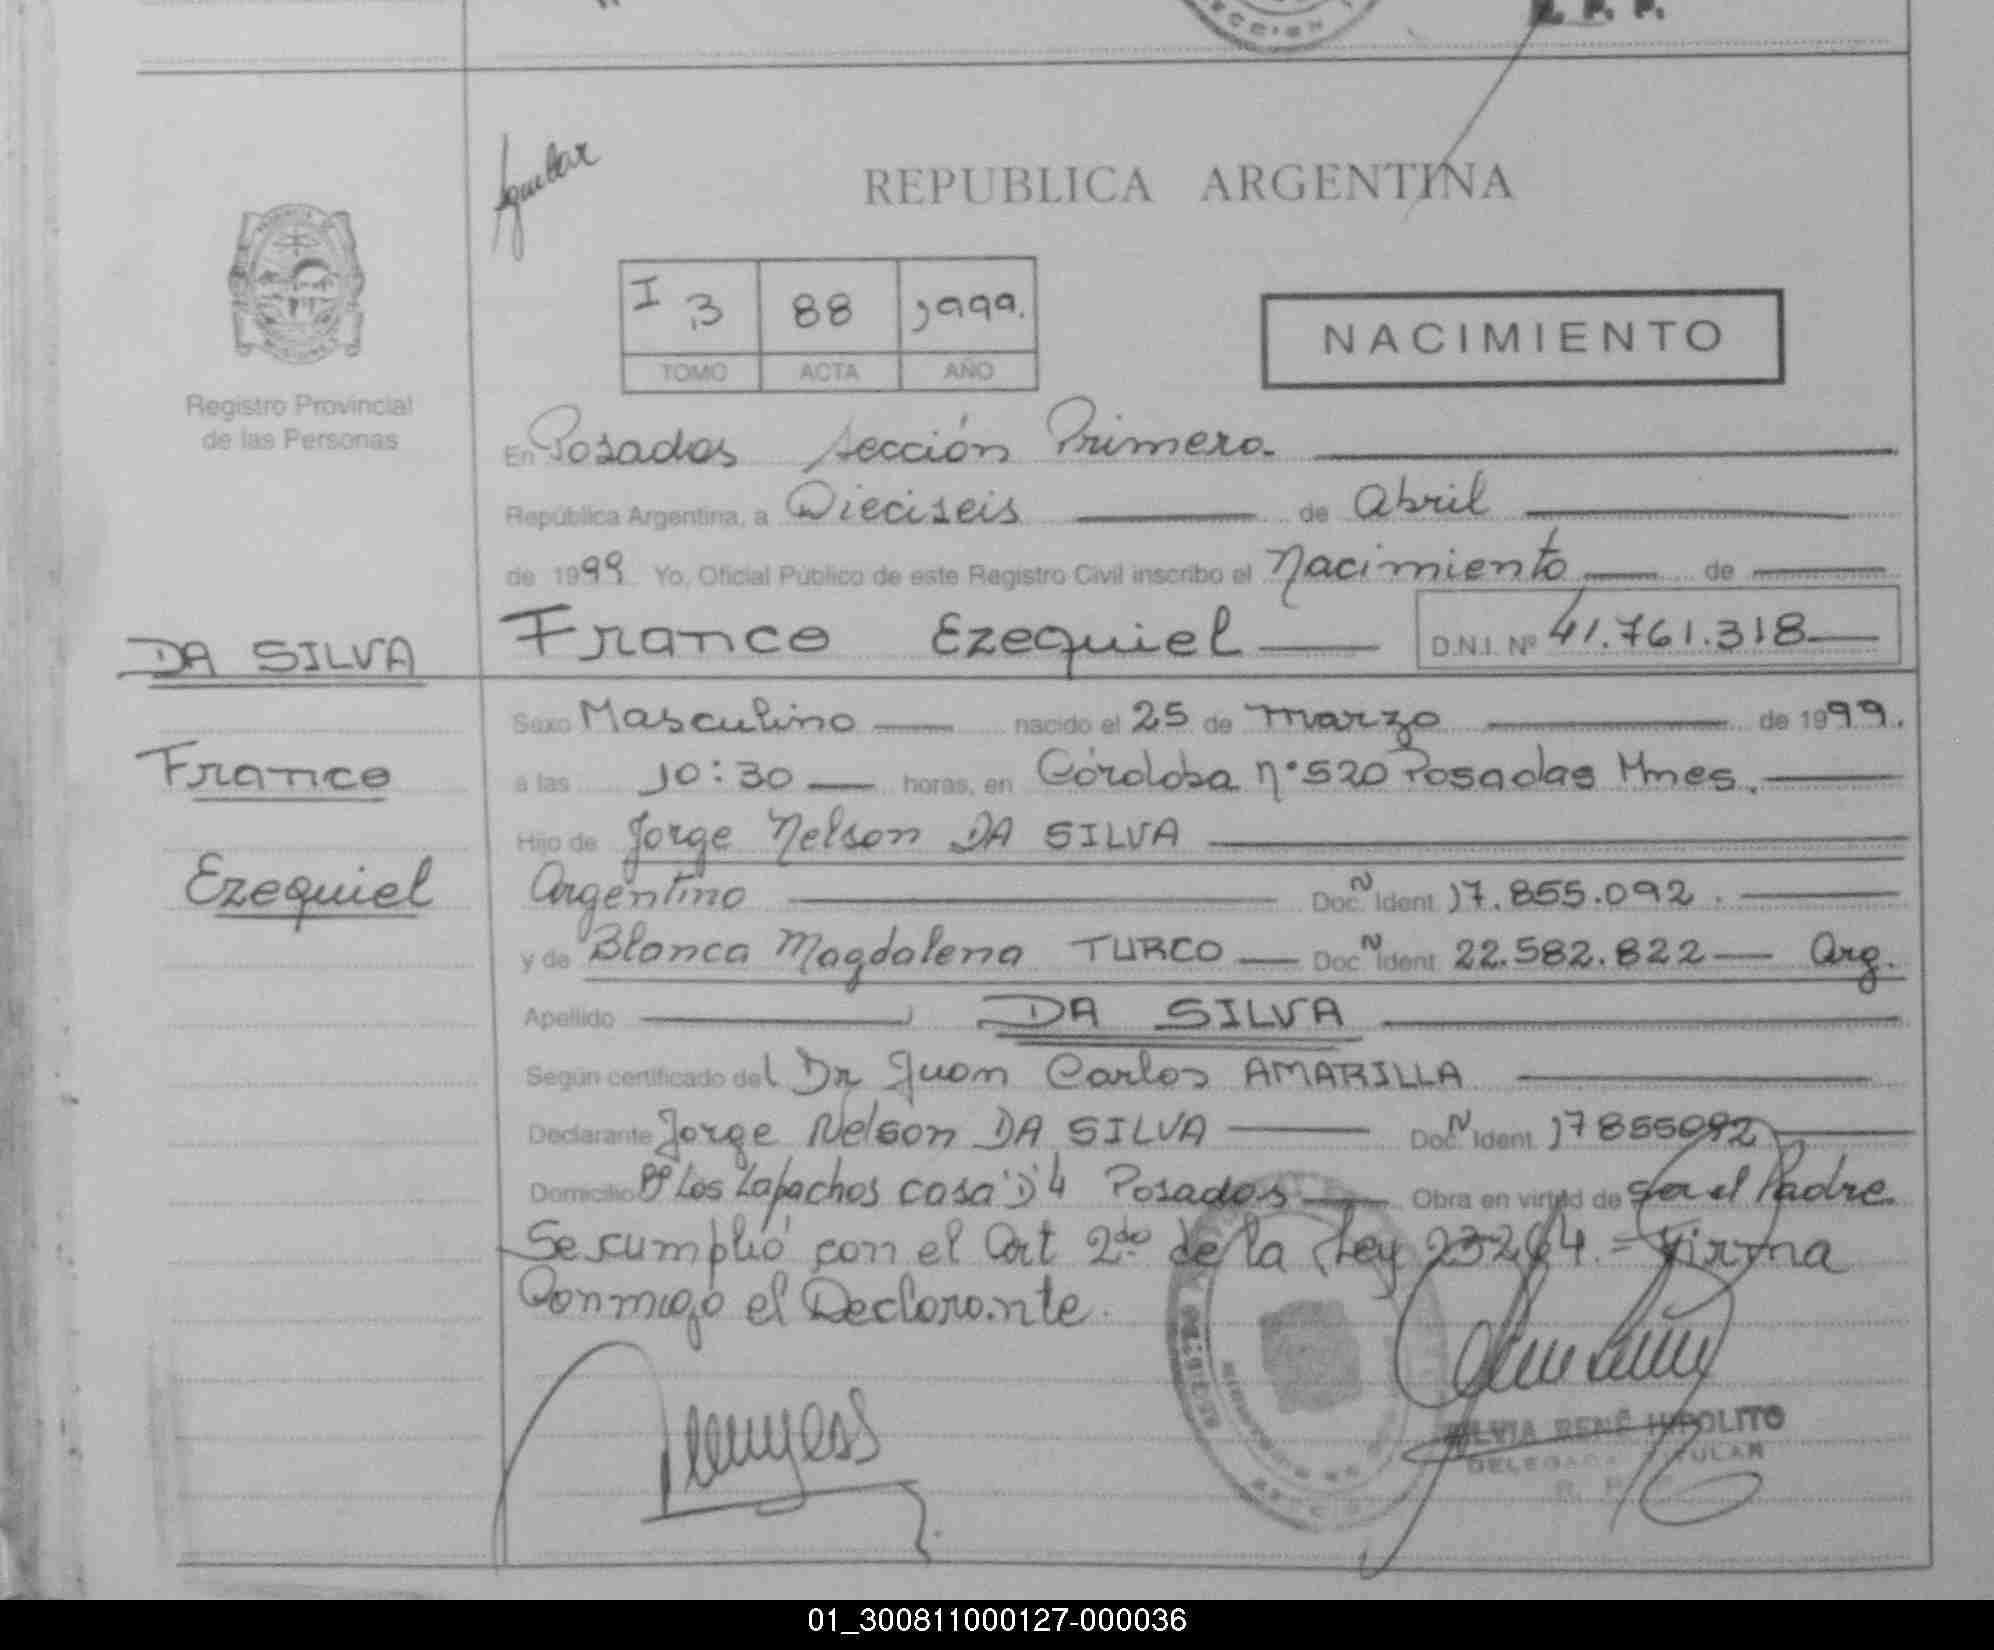 Aguilar
REPUBLICA ARGENTINA
I 3 88 1999.
TOMO ACTA AÑO
NACIMIENTO
Registro Provincial
de las Personas
En Posadas Sección Primera.
República Argentina, a Dieciseis de Abril
de 1999 Yo, Oficial Público de este Registro Civil inscribo el Nacimiento de
DA SILVA
Franco Ezequiel D.N.I. Nº 41.761.318
Sexo Masculino nacido el 25 de marzo de 1999.
Franco
a las 10:30 horas, en Córdoba n° 520 Posadas Mnes.
Hijo de Jorge Nelson DA SILVA
Ezequiel
Argentino Doc. N Ident 17.855.092.
y de Blanca Magdalena TURCO Doc. N Ident 22.582.822 Arg.
Apellido DA SILVA
Según certificado del Dr Juan Carlos AMARILLA
Declarante Jorge Nelson DA SILVA Doc. N Ident. 17855092
Domicilio Bº Los Lapachos casa D'4 Posadas Obra en virtud de ser el Padre.
Se cumplió con el Art 2do de la Ley 23264.= Firma
Conmigo el Declarante.
SILVIA RENÉ HIPOLITO
DELEGADA TITULAR
01_300811000127-000036